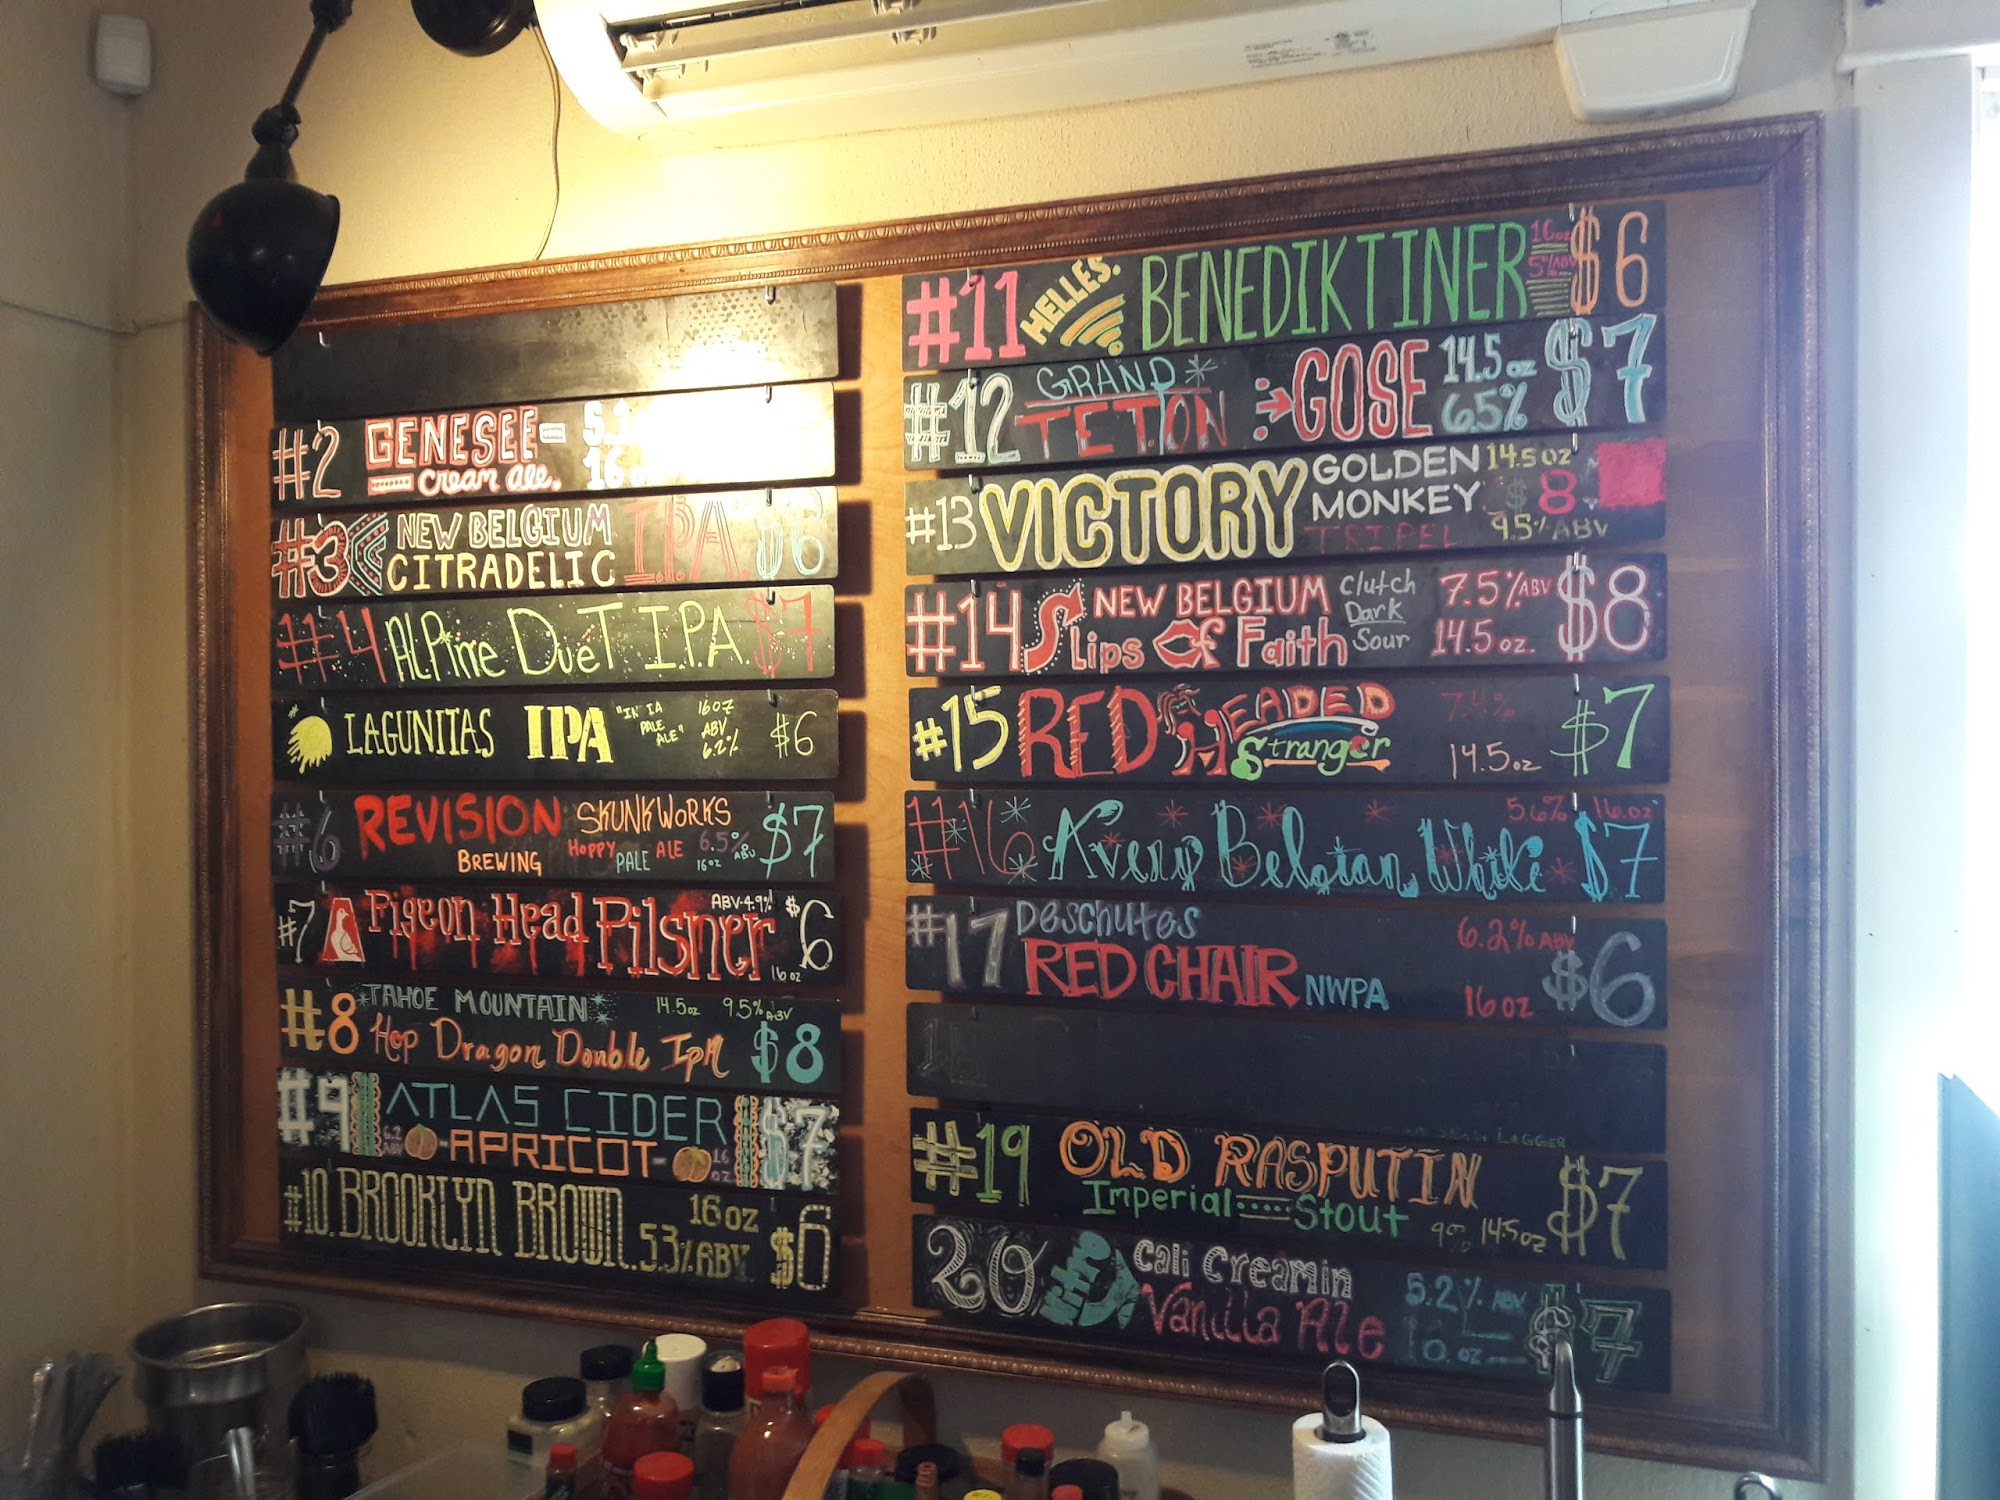 #2 GENESEE 5.1
cream ale. 16 oz
#3 NEW BELGIUM I.P.A. $6
CITRADELIC
#4 ALPine DueT I.P.A. $7
LAGUNITAS IPA "INDIA PALE ALE" 16oz ABV 6.2% $6
#6 REVISION SKUNKWORKS $7
BREWING HOPPY PALE ALE 6.5% ABV 16oz
#7 Pigeon Head Pilsner ABV-4.9% $6
16 oz
#8 TAHOE MOUNTAIN 14.5oz 9.5% ABV
Hop Dragon Double IPA $8
#9 ATLAS CIDER $7
6.2 ABV -APRICOT- 16 oz
#10. BROOKLYN BROWN. 16oz $6
5.3% ABV
#11 HELLES. BENEDIKTINER 16oz 5% ABV $6
#12 GRAND TETON GOSE 14.5 oz 6.5% $7
#13 VICTORY GOLDEN MONKEY TRIPEL 14.5 oz $8
9.5% ABV
#14 NEW BELGIUM Clutch 7.5% ABV $8
Slips Of Faith Dark Sour 14.5 oz.
#15 RED HEADED Stranger 7.4% $7
14.5oz
#16 Avery Belgian White 5.6% 16oz $7
#17 Deschutes 6.2% ABV $6
RED CHAIR NWPA 16 oz
18
LAGGER
#19 OLD RASPUTIN $7
Imperial Stout 9% 14.5oz
20 Cali Creamin 5.2% ABV $7
Vanilla Ale 16. oz